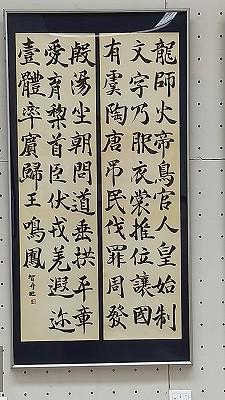 龍師火帝鳥官人皇始制
文字乃服衣裳推位讓國
有虞陶唐吊民伐罪周發
殷湯坐朝問道垂拱平章
愛育黎首臣伏戎羌遐迩
壹體率賓歸王鳴鳳